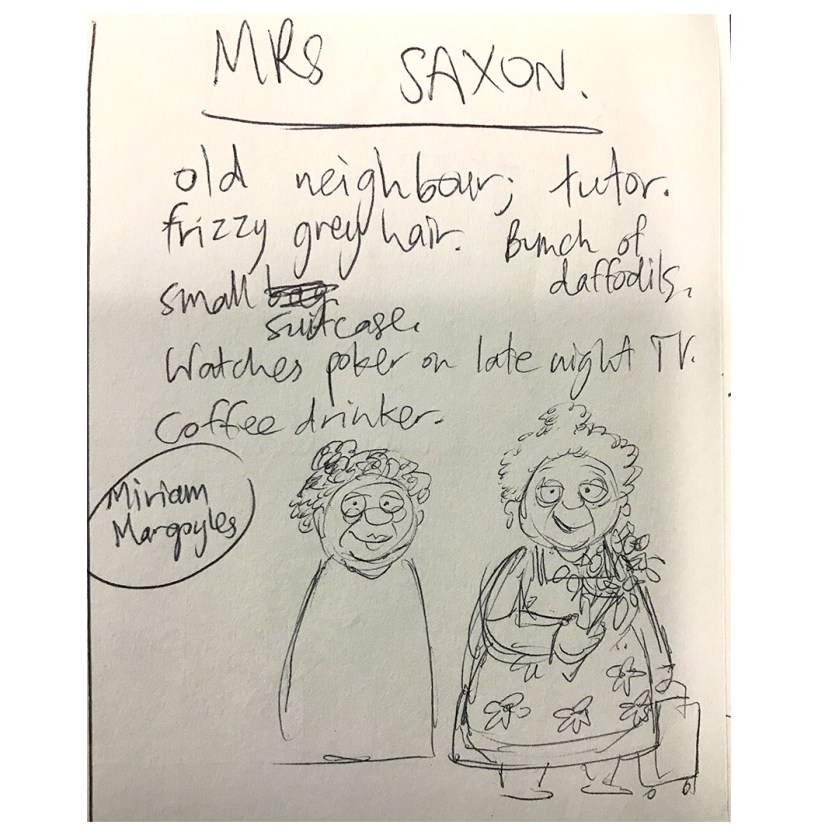 MRS SAXON.
old neighbour; tutor.
frizzy grey hair. Bunch of
daffodils.
small
suitcase.
Watches poker on late night TV.
Coffee drinker.
Miriam
Margoyles